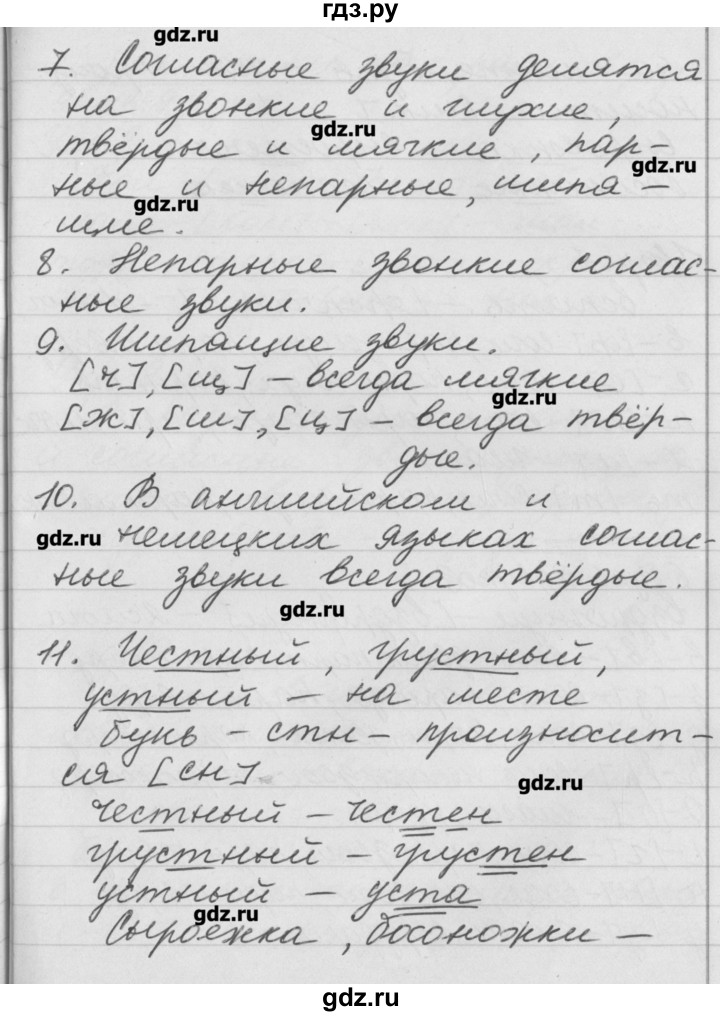 гдз.ру
gdz.ru
7. Согласные звуки делятся
на звонкие и глухие,
gdz.ru
твёрдые и мягкие, пар-
gdz.ru
ные и непарные, шипя-
gdz.ru
щие.
8. Непарные звонкие соглас-
ные звуки.
9. Шипящие звуки.
[ч], [щ] – всегда мягкие
gdz.ru
[ж], [ш], [ц] – всегда твёр-
дые.
10. В английском и
gdz.ru
немецких языках соглас-
ные звуки всегда твёрдые.
gdz.ru
11. Честный, грустный,
устный – на месте
букв – стн – произносит-
ся [сн]
gdz.ru
честный – честен
грустный – грустен
устный – уста
gdz.ru
Сыроежка, босоножки –
gdz.ru